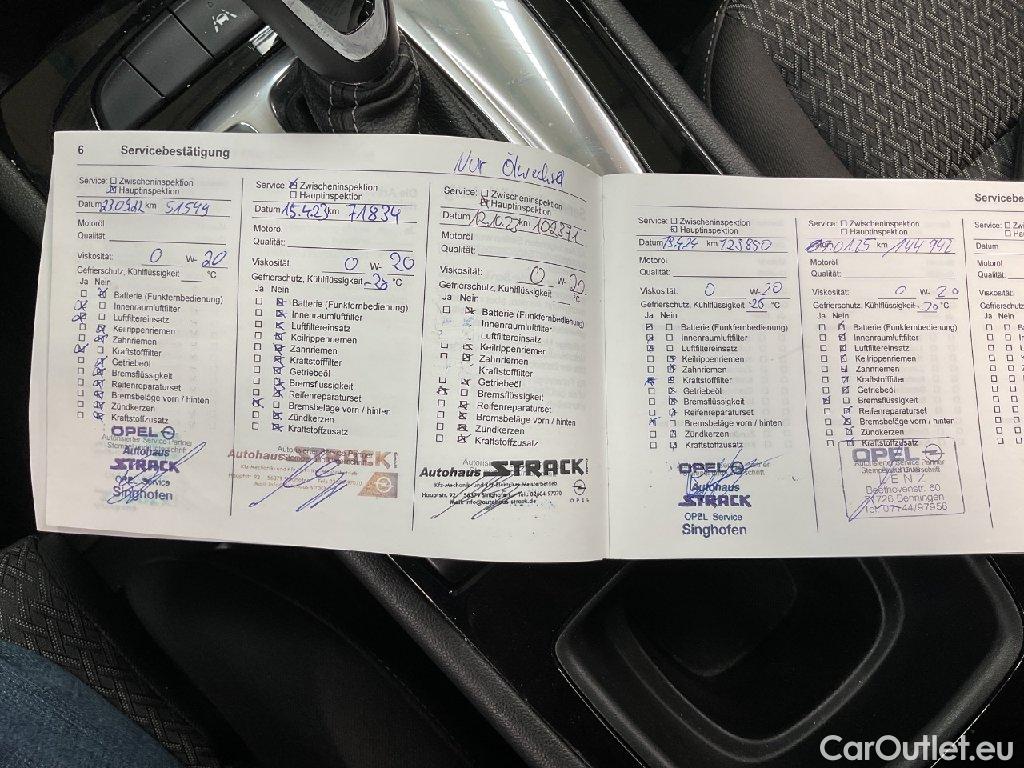 6 Servicebestätigung
Nur Ölwechsel
Service: Zwischeninspektion
Hauptinspektion
Datum 23.09.22 km 51544
Motoröl
Qualität:
Viskosität: 0 W- 20
Gefrierschutz, Kühlflüssigkeit °C
Ja Nein
Batterie (Funkfernbedienung)
Innenraumluftfilter
Luftfiltereinsatz
Keilrippenriemen
Zahnriemen
Kraftstofffilter
Getriebeöl
Bremsflüssigkeit
Reifenreparaturset
Bremsbeläge vorn / hinten
Zündkerzen
Kraftstoffzusatz
OPEL
Autorisierter Service Partner
Autohaus
STRACK
OPEL Service
Singhofen
Service: Zwischeninspektion
Hauptinspektion
Datum 15.4.23 km 71834
Motoröl
Qualität:
Viskosität: 0 W- 20
Gefrierschutz, Kühlflüssigkeit -30 °C
Ja Nein
Batterie (Funkfernbedienung)
Innenraumluftfilter
Luftfiltereinsatz
Keilrippenriemen
Zahnriemen
Kraftstofffilter
Getriebeöl
Bremsflüssigkeit
Reifenreparaturset
Bremsbeläge vorn / hinten
Zündkerzen
Kraftstoffzusatz
Autohaus STRACK
Service: Zwischeninspektion
Hauptinspektion
Datum km
Motoröl
Qualität:
Viskosität: 0 W- 20
Gefrierschutz, Kühlflüssigkeit °C
Ja Nein
Batterie (Funkfernbedienung)
Innenraumluftfilter
Luftfiltereinsatz
Keilrippenriemen
Zahnriemen
Kraftstofffilter
Getriebeöl
Bremsflüssigkeit
Reifenreparaturset
Bremsbeläge vorn / hinten
Zündkerzen
Kraftstoffzusatz
Autohaus STRACK
OPEL
Service: Zwischeninspektion
Hauptinspektion
Datum km 123850
Motoröl
Qualität:
Viskosität: 0 W- 20
Gefrierschutz, Kühlflüssigkeit °C
Ja Nein
Batterie (Funkfernbedienung)
Innenraumluftfilter
Luftfiltereinsatz
Keilrippenriemen
Zahnriemen
Kraftstofffilter
Getriebeöl
Bremsflüssigkeit
Reifenreparaturset
Bremsbeläge vorn / hinten
Zündkerzen
Kraftstoffzusatz
OPEL
Autohaus
STRACK
OPEL Service
Singhofen
Servicebe
Service: Zwischeninspektion
Hauptinspektion
Datum km
Motoröl
Qualität:
Viskosität: 0 W- 20
Gefrierschutz, Kühlflüssigkeit °C
Ja Nein
Batterie (Funkfernbedienung)
Innenraumluftfilter
Luftfiltereinsatz
Keilrippenriemen
Zahnriemen
Kraftstofffilter
Getriebeöl
Bremsflüssigkeit
Reifenreparaturset
Bremsbeläge vorn / hinten
Zündkerzen
Kraftstoffzusatz
OPEL
Service:
Datum
Motoröl
Qualität:
Viskosität:
Gefrierschutz
Ja Nein
CarOutlet.eu